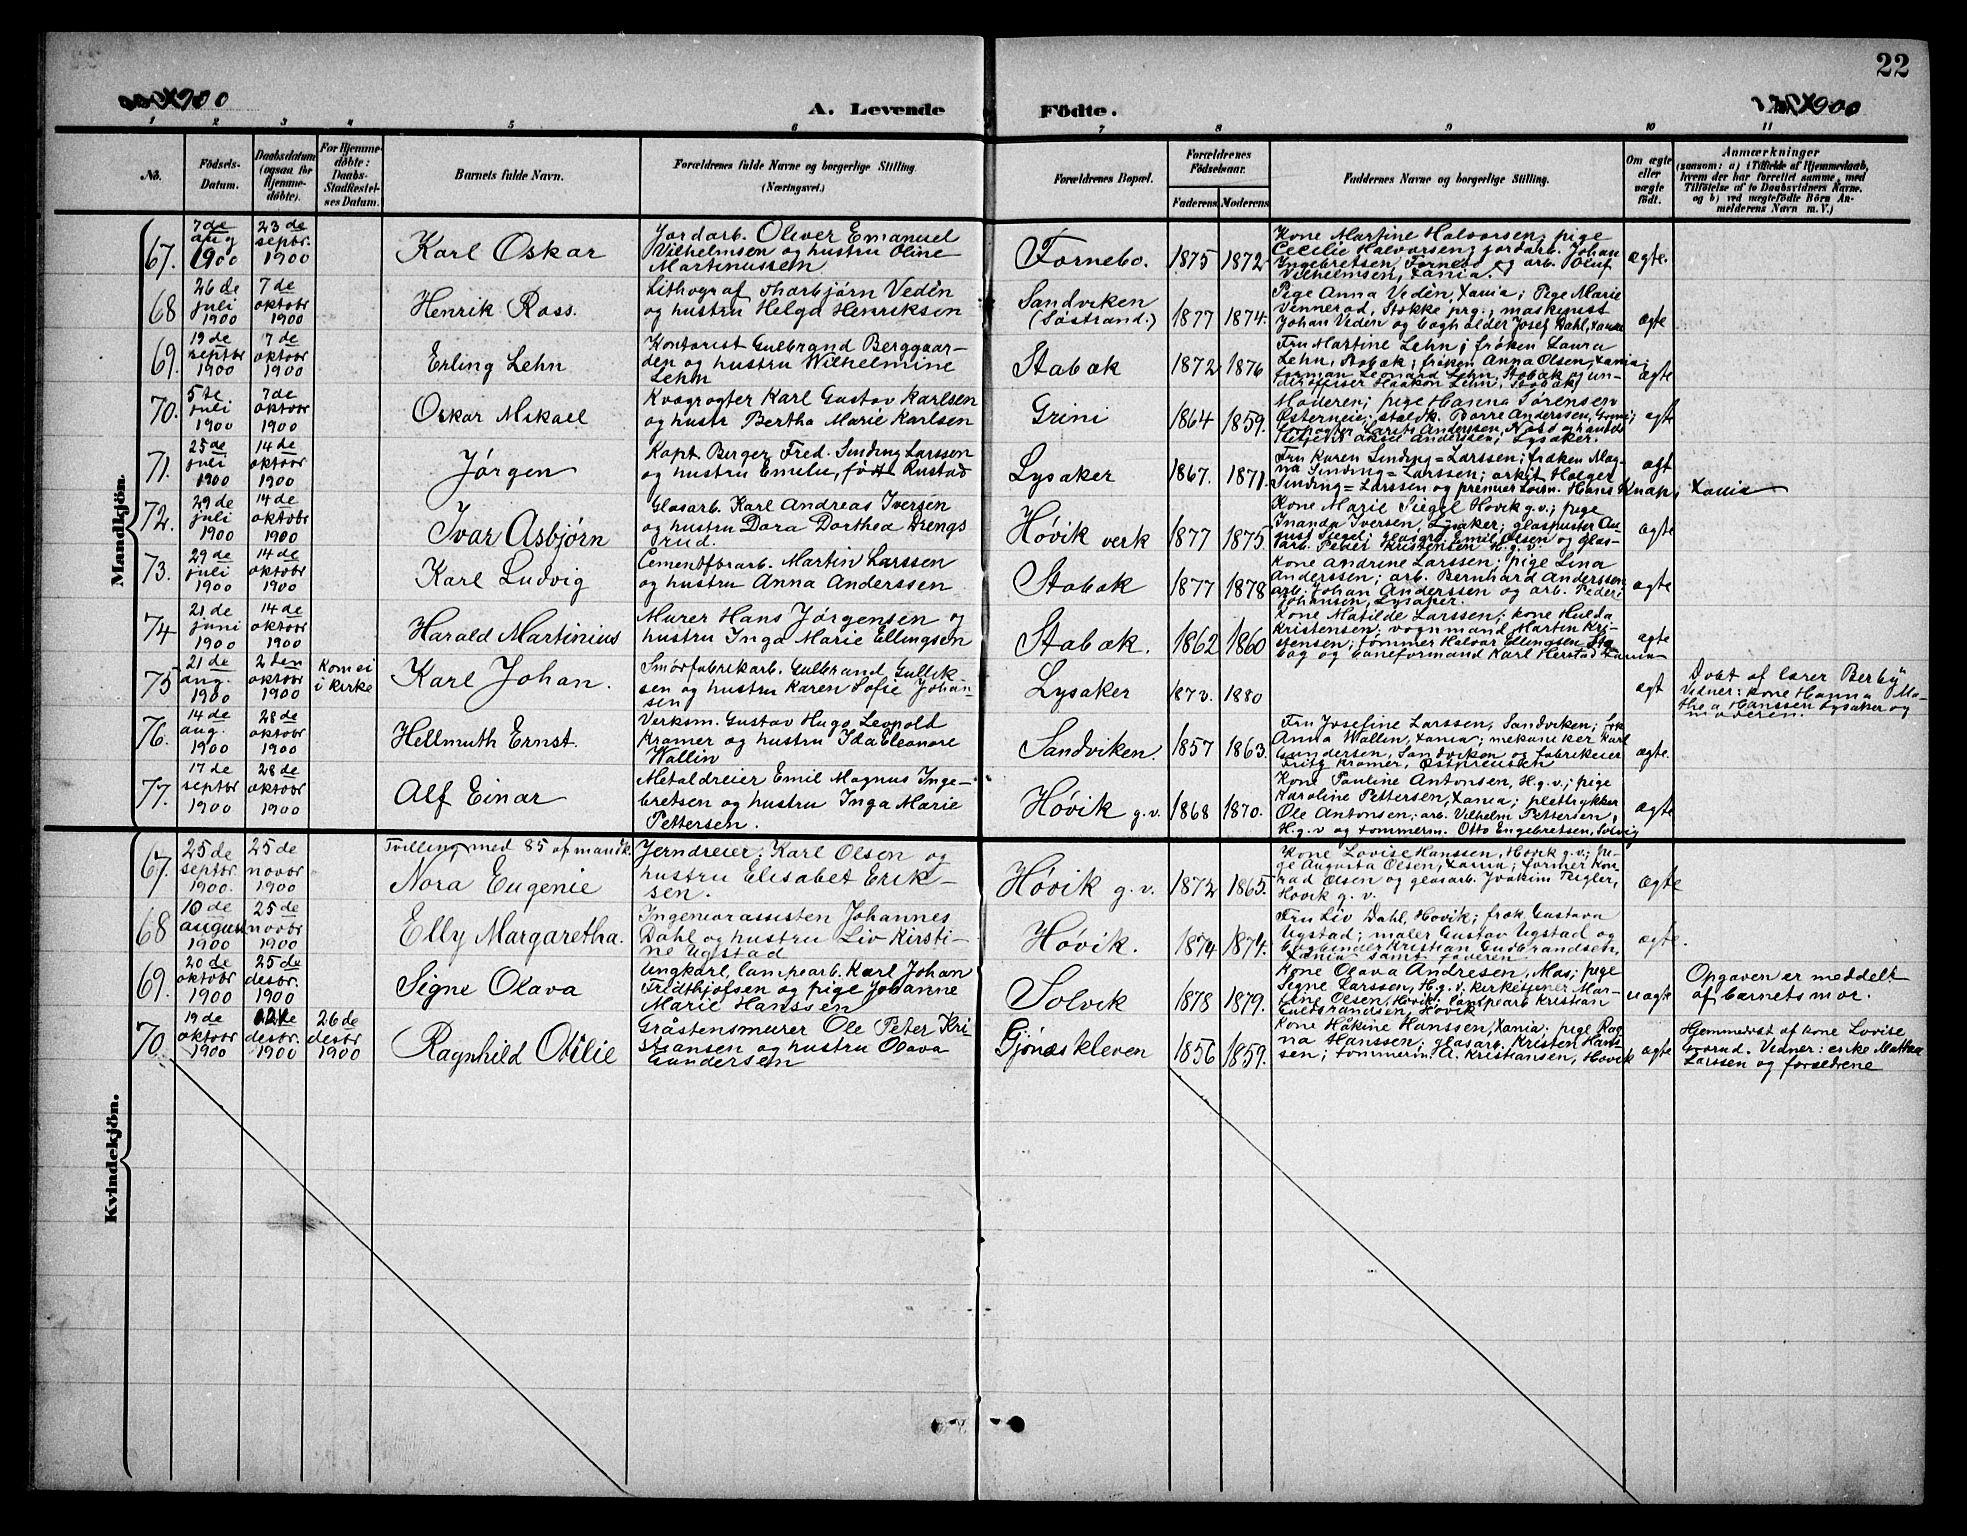 22
1900
1900
A. Levende
Fødte.
1 2 3 4 5 6 7 8 9 10 11
No.
Fødsels-
Datum.
Daabsdatum
(ogsaa for
Hjemme-
døbte).
For Hjemme-
døbte:
Daabs-
Stadfæstel-
ses Datum.
Barnets fulde Navn.
Forældrenes fulde Navne og borgerlige Stilling.
(Næringsvei.)
Forældrenes Bopæl.
Forældrenes
Fødselsaar.
Faderens. Moderens.
Faddernes Navne og borgerlige Stilling.
Om ægte
eller
uægte
født.
Anmærkninger
(saasom: a) i Tilfælde af Hjemmedaab,
hvem der har forrettet samme, med
Tilføielse af to Daabsvidners Navne,
og b) ved uægtefødte Børn An-
melderens Navn m. V.)
Mandkjön.
67.
7 de
aug
1900
23 de
septbr.
1900
Karl Oskar
Jordarb. Oliver Emanuel
Vilhelmsen og hustru Oline
Martinussen
Fornebo.
1875
1872
Kone Martine Halvorsen; pige
Cecilie Halvorsen; jordarb. Johan
Ingebretsen, Fornebo og arb. Oluf
Vilhelmsen, Xania.
ægte.
68
26 de
juli
1900
7 de
oktobr
1900
Henrik Ross.
Lithograf Thorbjørn Vedèn
og hustru Helga Henriksen
Sandviken
(Søstrand.)
1877
1874.
Pige Anna Vedèn, Xania; Pige Marie
Vennerød, Stokke prg.; maskinist
Johan Vedèn og bogholder Josef Dahl, Xania
ægte
69.
19 de
septbr
1900
7 de
oktobr
1900
Erling Lehn
Kontorist Gulbrand Berggaar-
den og hustru Wilhelmine
Lehn
Stabæk
1872
1876
Fru Martine Lehn; frøken Laura
Lehn, Stabæk; frøken Anna Olsen, Xania;
forman Leonard Lehn, Stabæk og un-
derofficer Haakon Lehn, Stabæk
ægte
70.
5 te
juli
1900
7 de
oktobr
1900
Oskar Mikael
Kvægrøgter Karl Gustav Karlsen
og hustr Bertha Marie Karlsen
Grini
1864
1859.
Moderen; pige Hanna Sørensen
Østerneie; staldk. Børre Anderssen, Grini;
Aksel Anderssen, Lysaker.
ægte
71.
25 de
juli
1900
14 de
oktobr
1900
Jørgen
Kapt. Birger Fred. Sinding Larssen
og hustru Emilie, født Rustad
Lysaker
1867.
1871.
Fru Karen Sinding=Larssen; frøken Mag-
na Sinding=Larssen; arkit Holger
Sinding=Larssen og premier Løitn. Hans Knap, Xania
ægt
72.
29 de
juli
1900
14 de
oktobr
1900
Ivar Asbjørn
Glasarb. Karl Andreas Iversen
og hustru Dora Dorthea Drengs
rud.
Høvik verk
1877
1875.
Kone Marie Siegel Høvik g.v.; pige
Inanda Iversen, Lysaker; glaspuster Au-
gust Siegel; glasgrd. Emil Olsen og glas-
arb. Peter Kristensen H.g.v.
ægte
73.
29 de
juli
1900
14 de
oktobr
1900
Karl Ludvig
Cementforarb. Martin Larssen
og hustru Anna Anderssen
Stabæk
1877
1878
Kone Andrine Larssen; pige Lina
Anderssen; arb. Bernhard Anderssen;
arb. Johan Anderssen og arb. Peder
Johansen, Lysaker.
ægte
74
21 de
juni
1900
14 de
oktobr
1900
Harald Martinius
Murer Hans Jørgensen og
hustru Inga Marie Ellingsen
Stabæk.
1862
1860
Kone Matilde Larssen; kone Hulda
Kristensen; vognmand Martin Kri-
stensen; tømmer Halvor Ellingsen Sta-
bæg og baneformand Karl Herstad Xania
ægte
75
21 de
aug.
1900
2 den
oktobr
1900
Kom ei
i kirke
Karl Johan.
Smørfabrikarb. Gulbrand Gullik-
sen og hustru Karen Sofie Johan-
sen
Lysaker
1872.
1880
ægt
Døbt af lærer Berby
Vidner: kone Hanna Ma-
thea Hanssen Lysaker og
moderen.
76.
14 de
aug.
1900
28 de
oktobr
1900
Hellmuth Ernst.
Verksm. Gustav Hugo Leopold
Kramer og hustru Ida Eleonore
Wallin
Sandviken.
1857
1863.
Fru Josefine Larssen, Sandviken; frk.
Anna Wallin, Xania; mekaniker Karl
Gundersen, Sandviken og fabrikeier
Fritz Kramer, Østpreusten
ægte.
77.
17 de
septbr
1900
28 de
oktobr
1900
Alf Einar
Metaldreier Emil Magnus Inge-
bretsen og hustru Inga Marie
Pettersen.
Høvik g.v.
1868
1870.
Kone Pauline Antonsen, H.g.v.; pige
Karoline Pettersen, Xania; plettrykker
Ole Antonsen; arb. Vilhelm Pettersen,
H.g.v og tømmerm. Otto Engebretsen, Solvig
ægte
Kvindekjön.
67.
25 de
septbr
1900.
25 de
novbr
1900
Tvilling med 85 af mandk.
Nora Eugenie
Jerndreier; Karl Olsen og
hustru Elisabet Erik-
sen.
Høvik g.v.
1872
1865.
Kone Lovise Hanssen, Høvik g.v.; pi-
ge Augusta Olsen, Xania; former Kon-
rad Olsen og glasarb. Joakim Teigler,
Høvik g.v.
ægte
68
10 de
august
1900
25 de
novbr
1900
Elly Margaretha.
Ingeniørassisten Johannes
Dahl og hustru Liv Kirsti-
ne Ugstad
Høvik.
1874
1874.
Fru Liv Dahl, Høvik; frøk. Gustava
Ugstad; maler Gustav Ugstad og
bogbinder Kristian Gudbrandsen,
Xania samt faderen
ægte.
69.
20 de
oktobr
1900
25 de
desbr.
1900
Signe Olava
Ungkarl, lampearb. Karl Johan
Fredthjofsen og pige Johanne
Marie Hanssen
Solvik
1878
1879.
Kone Olava Andresen, Mos; pige
Signe Larssen, H.g.v; kirketjener Mar-
tine Olsen, Høvik; lampearb Kristian
Guldbrandsen, Høvik
uægte
Opgaven er meddelt
af barnets mor.
70.
19 de
oktobr
1900
desbr.
1900
26 de
desbr
1900
Ragnhild Otilie
Gråstensmurer Ole Peter Kri-
stiansen og hustru Olava
Gundersen
Gjønneskleven
1856
1859.
Kone Håkine Hanssen, Xania; pige Rag-
na Hanssen; glasarb. Kristen Hans-
sen; tømmerm. A. Kristiansen, Høvik
ægte
Hjemmedøbt af kone Lovise
Vidner: enke Mathea
Larssen og forældrene